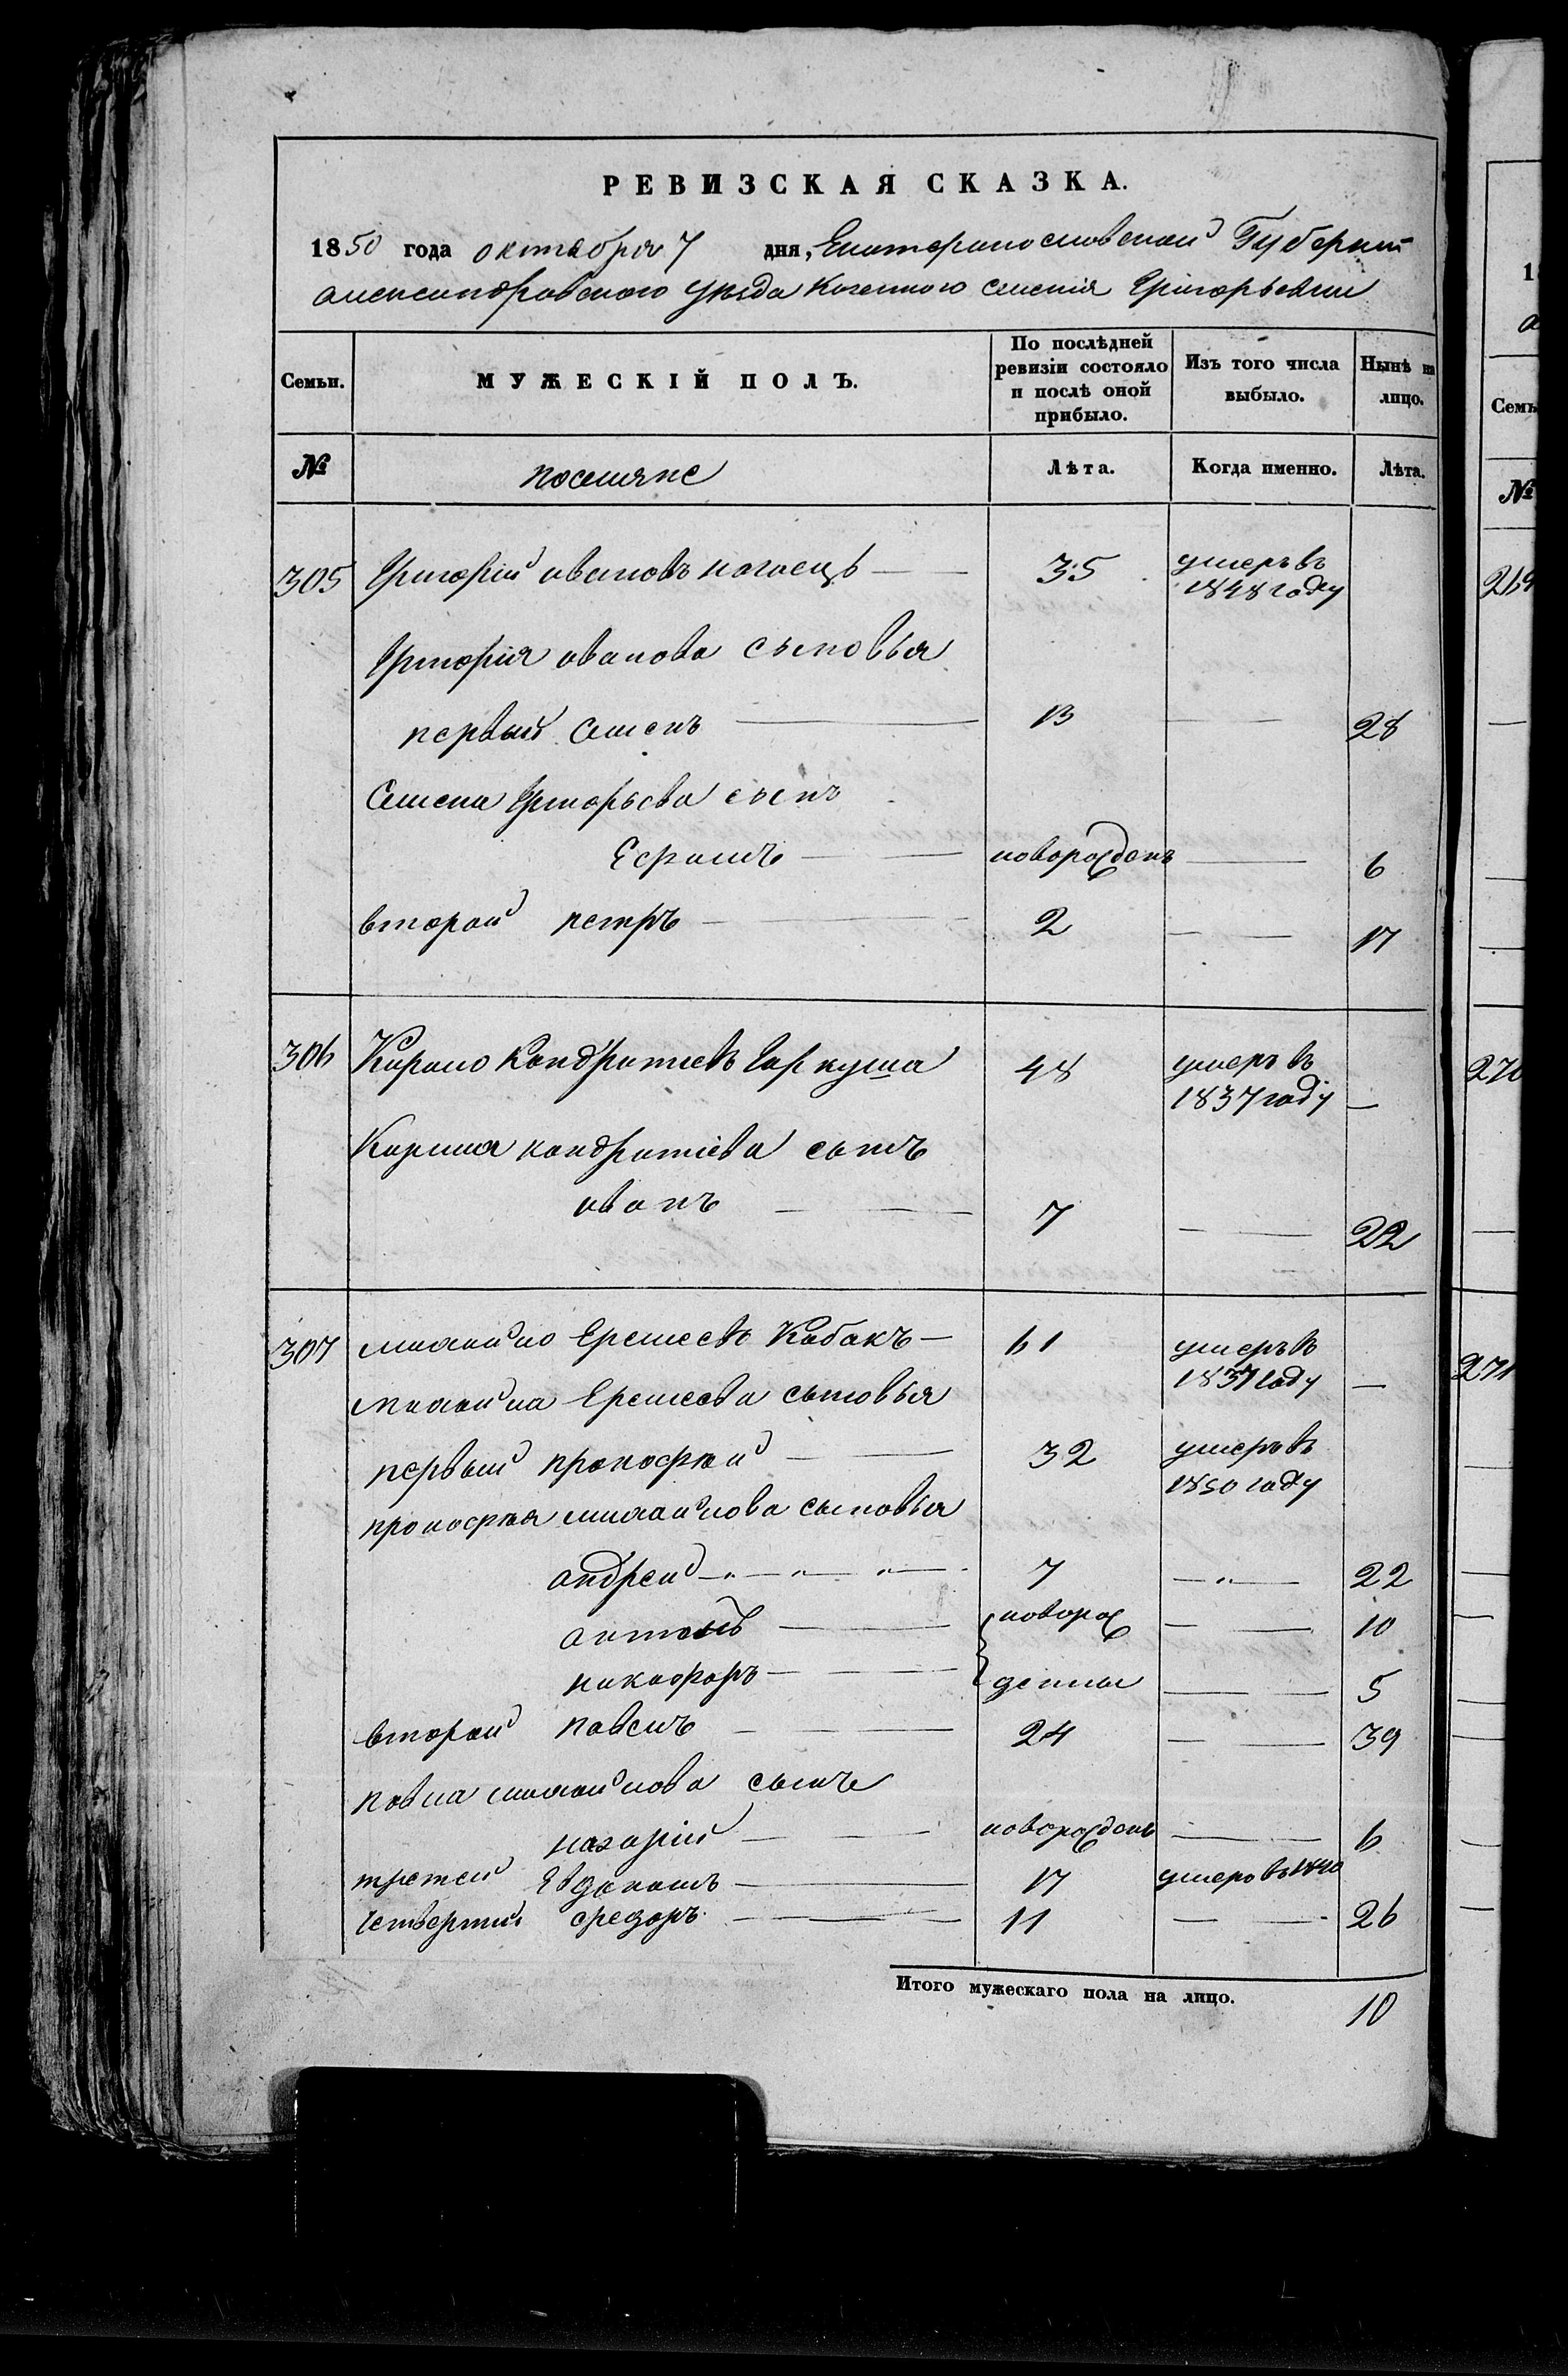 РЕВИЗСКАЯ СКАЗКА.
1850 года октября 7 дня, Екатеринославской Губернии
александровского уезда Казенного селенія Григорьевки
Семьи. МУЖЕСКІЙ ПОЛЪ. По послѣдней ревизіи состояло и послѣ оной прибыло. Изъ того числа выбыло. Нынѣ на лицо.
№ поселяне Лѣта. Когда именно. Лѣта.
305 Григорій ивановъ ногаецъ 35 умеръ въ 1848 году
Григорія иванова сыновья
первый Семенъ 13 28
Семена Григорьева сынъ
Ефимъ новорожденъ 6
второй петръ 2 17
306 Кирило Кондратіевъ Гаркуша 48 умеръ въ 1837 году
Кирила кондратіева сынъ
иванъ 7 22
307 михайло Еремеевъ Кабакъ 61 умеръ въ 1837 году
михайла Еремеева сыновья
первый прокофей 32 умеръ въ 1850 году
прокофея михайлова сыновья
андрей 7 22
антонъ новорож 10
никифоръ денны 5
второй павелъ 24 39
павла михайлова сынъ
назарій новорожденъ 6
третей Евдокимъ 17 умеръ въ 1840
четвертий федоръ 11 26
Итого мужескаго пола на лицо. 10
Семь
№
270
271